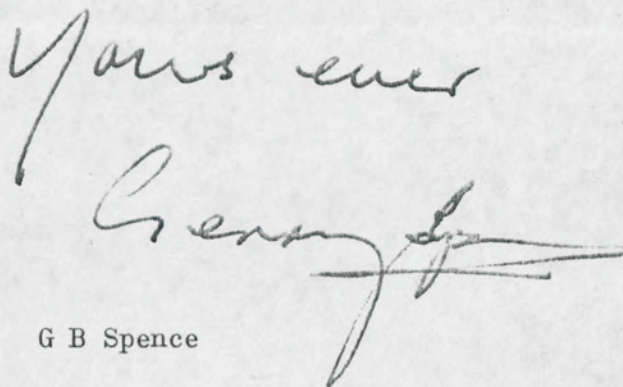 Yours ever
Gerry Sp
G B Spence